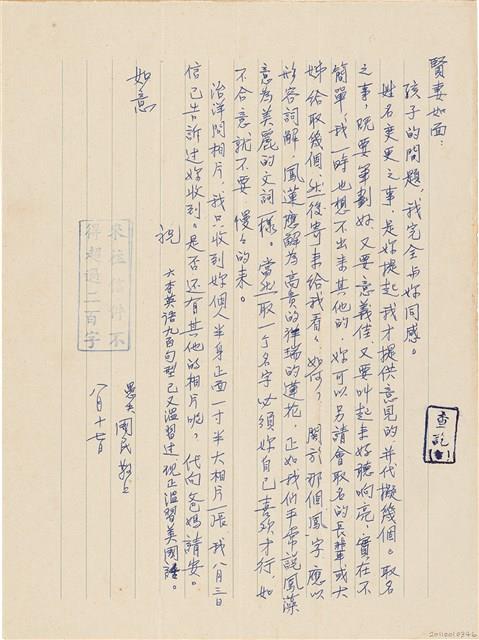 賢妻如面：
孩子的問題，我完全與妳同感。
姓名变更之事，是妳提起我才提供意見的，并代擬幾個。取名
之事，既要筆劃好，又要意義佳，又要叫起來好聽响亮，實在不
簡單，我一時也想不出来其他的，妳可以另請會取名的長輩或大
姊給取幾個，然後寄来給我看看如何，關於那個鳳字應以
形容詞解，鳳蓮應解為高貴的祥瑞的蓮花，正如我們平常說鳳藻
意為美麗的文詞一樣。當然取一个名字必須妳自己喜欢才行，如
不合意就不要，慢々的来。
治洋問相片，我只收到妳個人半身正面一寸半大相片一張，我八月三日
信已告訴过妳收到。是否还有其他的相片呢，代向爸媽請安。
祝
如意
六本英語九百句型已又溫習过，現正溫習美國語。
愚夫國民敬上
八月十七日
查訖
來往信件不
得超過二百字
20110010346